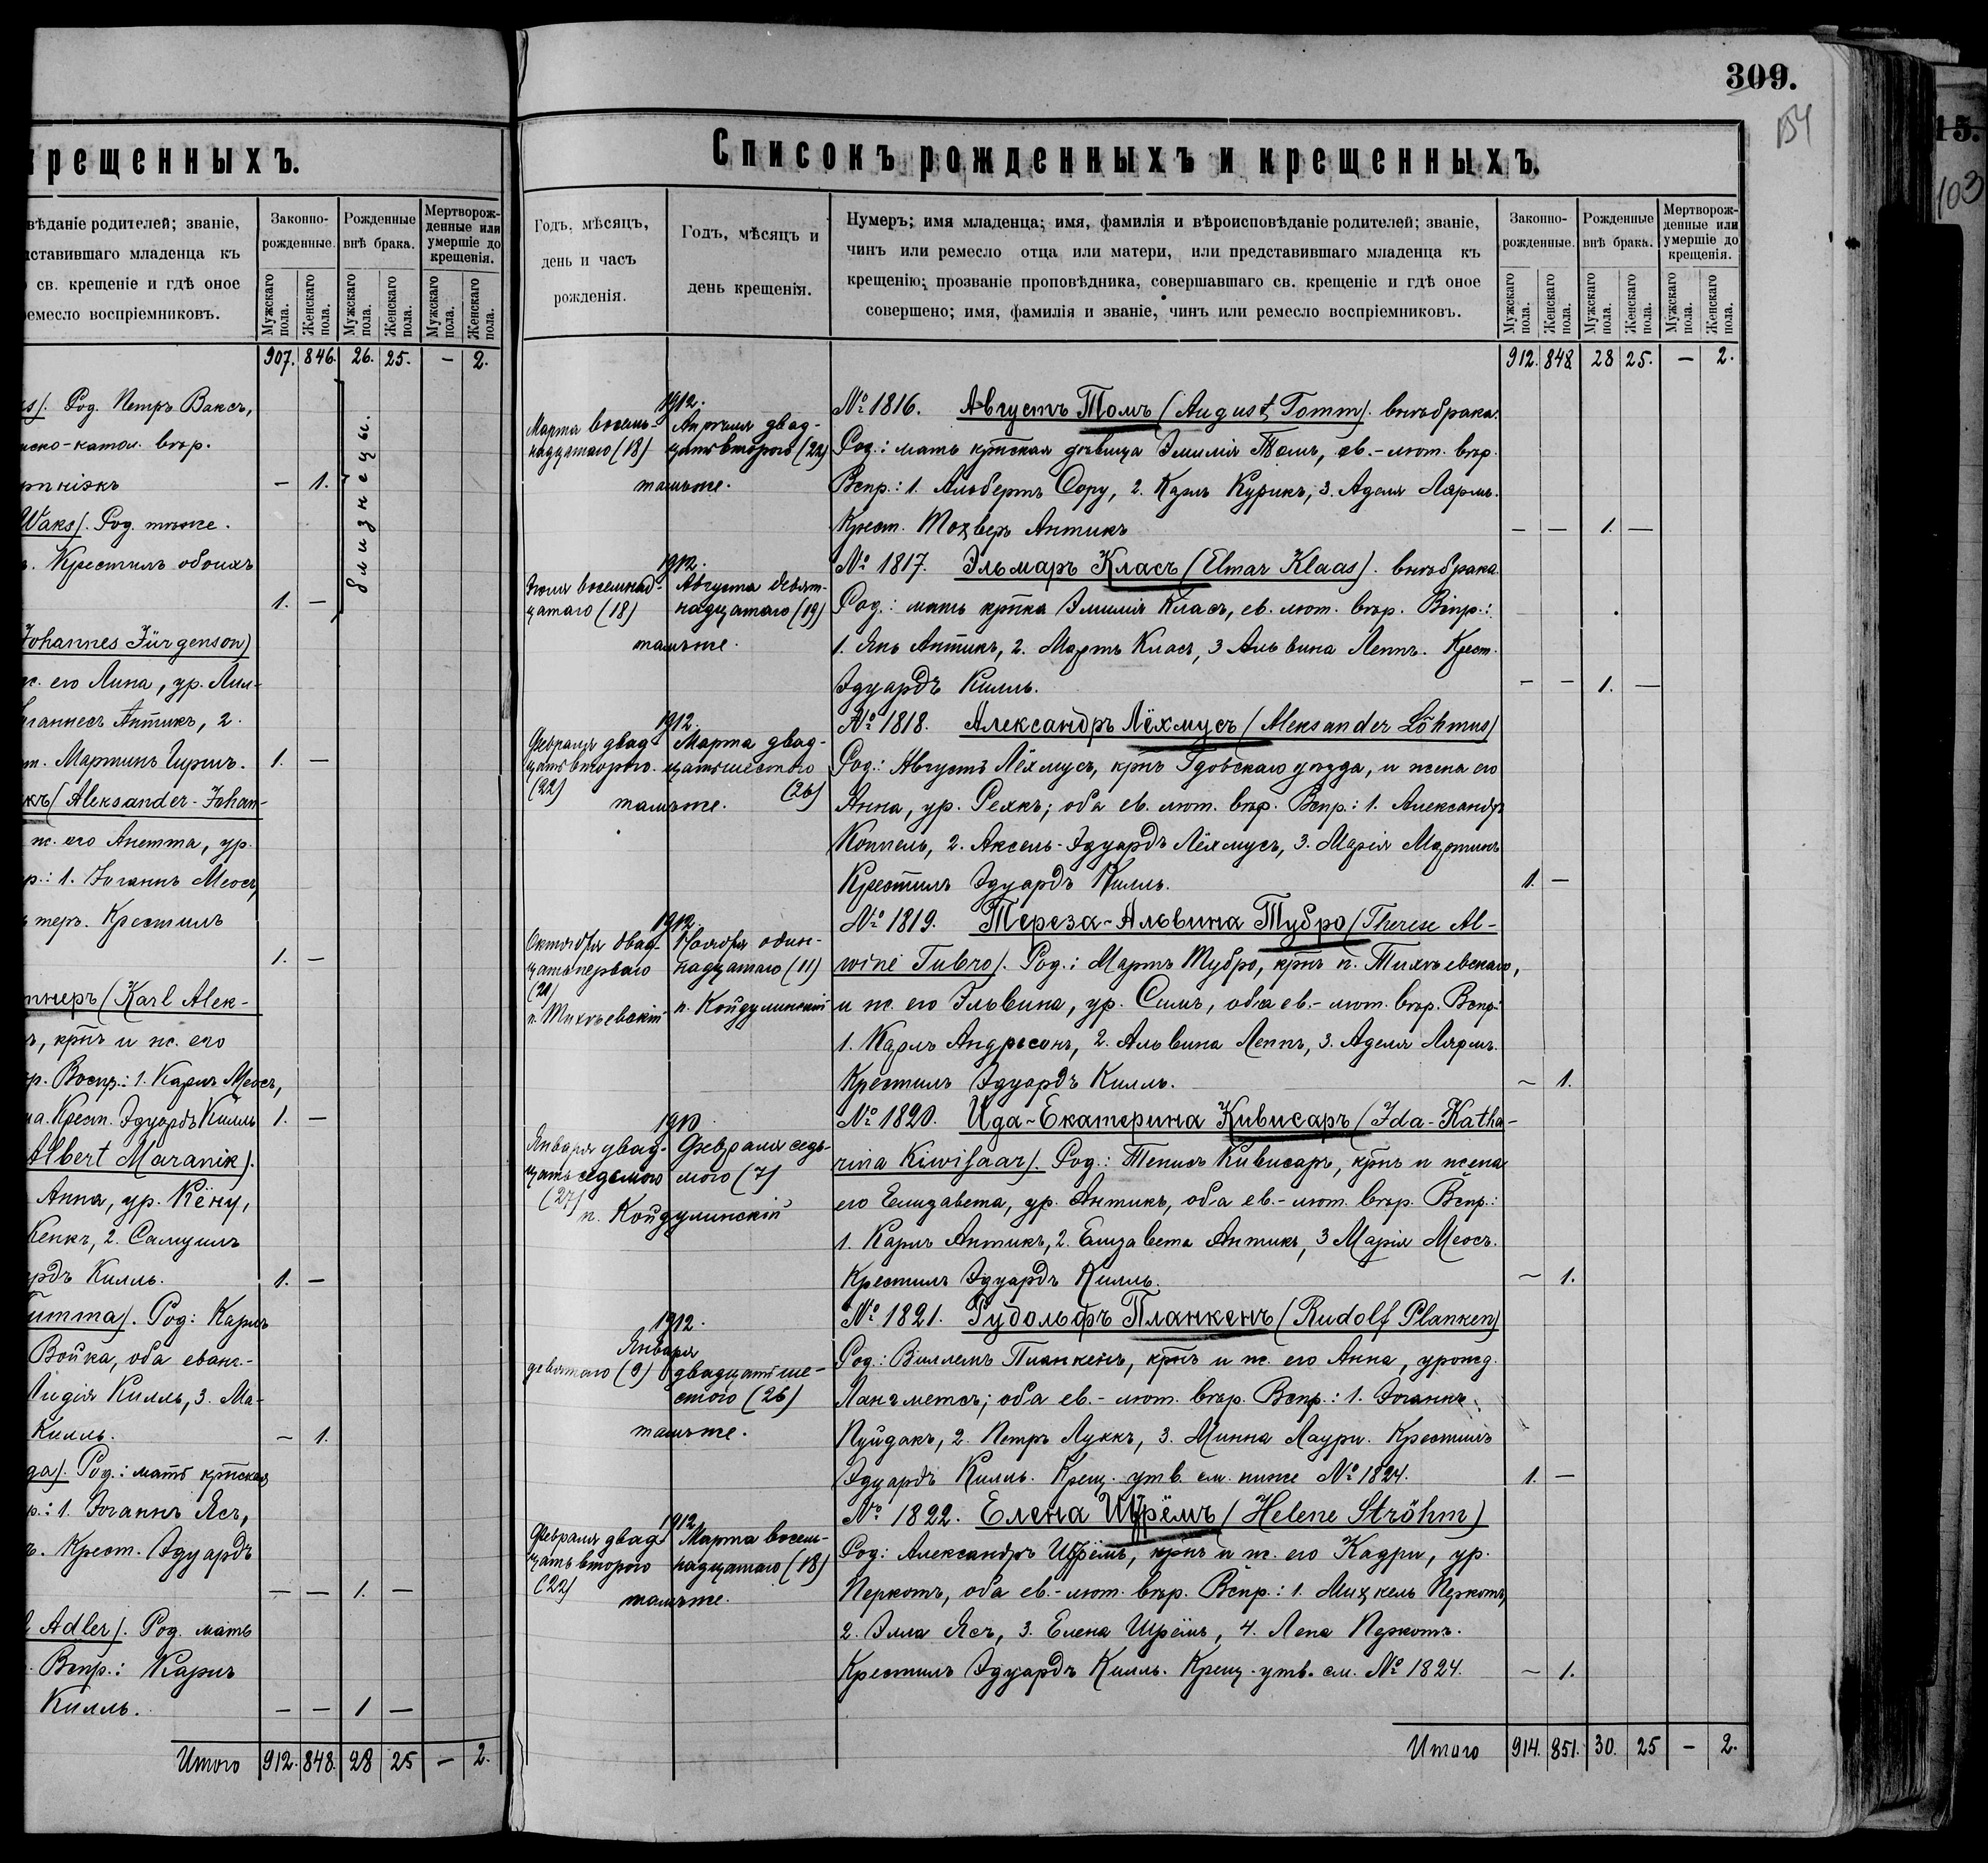 крещенныхъ.
вѣданіе родителей; званіе,
дставившаго младенца къ
св. крещеніе и гдѣ оное
ремесло воспріемниковъ.
Законно-рожденные.
Рожденные внѣ брака.
Мертворож-денные или умершіе до крещенія.
Мужскаго пола. Женскаго пола. Мужскаго пола. Женскаго пола. Мужскаго пола. Женскаго пола.
907. 846. 26. 25. — 2.
Род. Петръ Ваксъ,
ско-катол. вѣр.
— 1.
близнецы.
Waks). Род. тѣже.
Крестилъ обоихъ
1. —
Johannes Jürgenson)
ж. его Лина, ур. Лил-
Іоганнесъ Антикъ, 2.
Мартинъ Гиршъ. 1. —
(Aleksander-Johan-
ж. его Анетта, ур.
1. Іоганнъ Меосъ,
Крестилъ
1. —
(Karl Alek-
крнъ и ж. его
Воспр.: 1. Карлъ Меосъ,
Крест. Эдуардъ Килль 1. —
Albert Maranik).
Анна, ур. Кёну,
2. Самуилъ
Килль. 1. —
umma). Род: Карлъ
Войка, оба еванг-
Лидія Килль, 3. Ма-
Килль. — 1.
Род.: мать крнская
1. Іоганнъ Ясъ,
Крест. Эдуардъ
— — 1. —
Adler). Род. мать
Вспр.: Карлъ
Килль. — — 1 —
Итого 912. 848. 28 25 — 2.
309.
154
Списокъ рожденныхъ и крещенныхъ.
Годъ, мѣсяцъ,
день и часъ
рожденія.
Годъ, мѣсяцъ и
день крещенія.
Нумеръ; имя младенца; имя, фамилія и вѣроисповѣданіе родителей; званіе,
чинъ или ремесло отца или матери, или представившаго младенца къ
крещенію; прозваніе проповѣдника, совершавшаго св. крещеніе и гдѣ оное
совершено; имя, фамилія и званіе, чинъ или ремесло воспріемниковъ.
Законно-рожденные.
Рожденные внѣ брака.
Мертворож-денные или умершіе до крещенія.
Мужскаго пола. Женскаго пола. Мужскаго пола. Женскаго пола. Мужскаго пола. Женскаго пола.
912. 848. 28 25. — 2.
1912.
Марта восем-
надцатаго (18)
Апрѣля двад-
цать второго (22)
тамъже.
№ 1816. Августъ Томъ (August Tomm). внѣ брака.
Род.: мать крнская дѣвица Эмилія Томъ, ев.-лют. вѣр.
Вспр.: 1. Альбертъ Сору, 2. Карлъ Курикъ, 3. Аделя Лярмъ.
Крест. Антикъ — — 1. —
1912.
Іюля восемнад-
цатаго (18)
Августа девят-
надцатаго (19)
тамъже.
№ 1817. Эльмаръ Класъ (Elmar Klaas). внѣ брака.
Род.: мать крнка Эмилія Класъ, ев. лют. вѣр. Вспр.:
1. Янъ Антикъ, 2. Мартъ Класъ, 3 Альвина Леппъ. Крест.
Эдуардъ Килль. — — 1. —
1912.
Февраля двад-
цать второго.
(22)
Марта двад-
цать шестого
(26)
тамъже.
№ 1818. Александръ Лёхмусъ (Aleksander Löhmus)
Род.: Августъ Лёхмусъ, крнъ Гдовскаго уѣзда, и жена его
Анна, ур. Рехкъ; оба ев. лют. вѣр. Вспр.: 1. Александръ
Коппель, 2. Аксель-Эдуардъ Лёхмусъ, 3. Марія Мартинъ
Крестилъ Эдуардъ Килль. 1. —
1912.
Октября двад-
цать перваго
(21)
п. Тихвѣевскій
Ноября один-
надцатаго (11)
п. Койдулинскій
№ 1819. Тереза-Альвина Тубро (Therese Al-
wine Tubro). Род.: Мартъ Тубро, крнъ п. Тихвѣевскаго,
и ж. его Эльвина, ур. Симъ, оба ев.-лют. вѣр. Вспр:
1. Карлъ Андресонъ, 2. Альвина Леппъ, 3. Аделя Лярмъ.
Крестилъ Эдуардъ Килль. — 1.
1910
Января двад-
цать седьмого
(27)
Февраля седь-
мого (7)
п. Койдулинскій
№ 1820. Ида-Екатерина Кивисаръ (Ida-Katha-
rina Kiwisaar). Род.: Тенисъ Кивисаръ, крнъ и жена
его Елизавета, ур. Антикъ, оба ев.-лют. вѣр. Вспр.:
1. Карлъ Антикъ, 2. Елизавета Антикъ, 3 Марія Меосъ.
Крестилъ Эдуардъ Килль. — 1.
1912.
Января
девятаго (9)
двадцать ше-
стого (26)
тамъже.
№ 1821. Рудольфъ Планкенъ (Rudolf Planken)
Род.: Виллемъ Планкенъ, крнъ и ж. его Анна, урожд.
Лангметсъ; оба ев.-лют. вѣр. Вспр.: 1. Іоганнъ
Пуйдакъ, 2. Петръ Луккъ, 3. Минна Лаури. Крестилъ
Эдуардъ Килль. Крещ. утв. см. ниже № 1824. 1. —
1912.
Февраля двад-
цать второго
(22)
Марта восем-
надцатаго (18)
тамъже.
№ 1822. Елена Штрёмъ (Helene Ströhm)
Род: Александръ Штрёмъ, крнъ и ж. его Кадри, ур.
Перкотъ, оба ев.-лют. вѣр. Вспр.: 1. Михкель Перкотъ,
2. Элла Ясъ, 3. Елена Штрёмъ, 4. Лена Перкотъ.
Крестилъ Эдуардъ Килль. Крещ. утв. см. № 1824. — 1.
Итого 914. 851. 30. 25 — 2.
15.
103